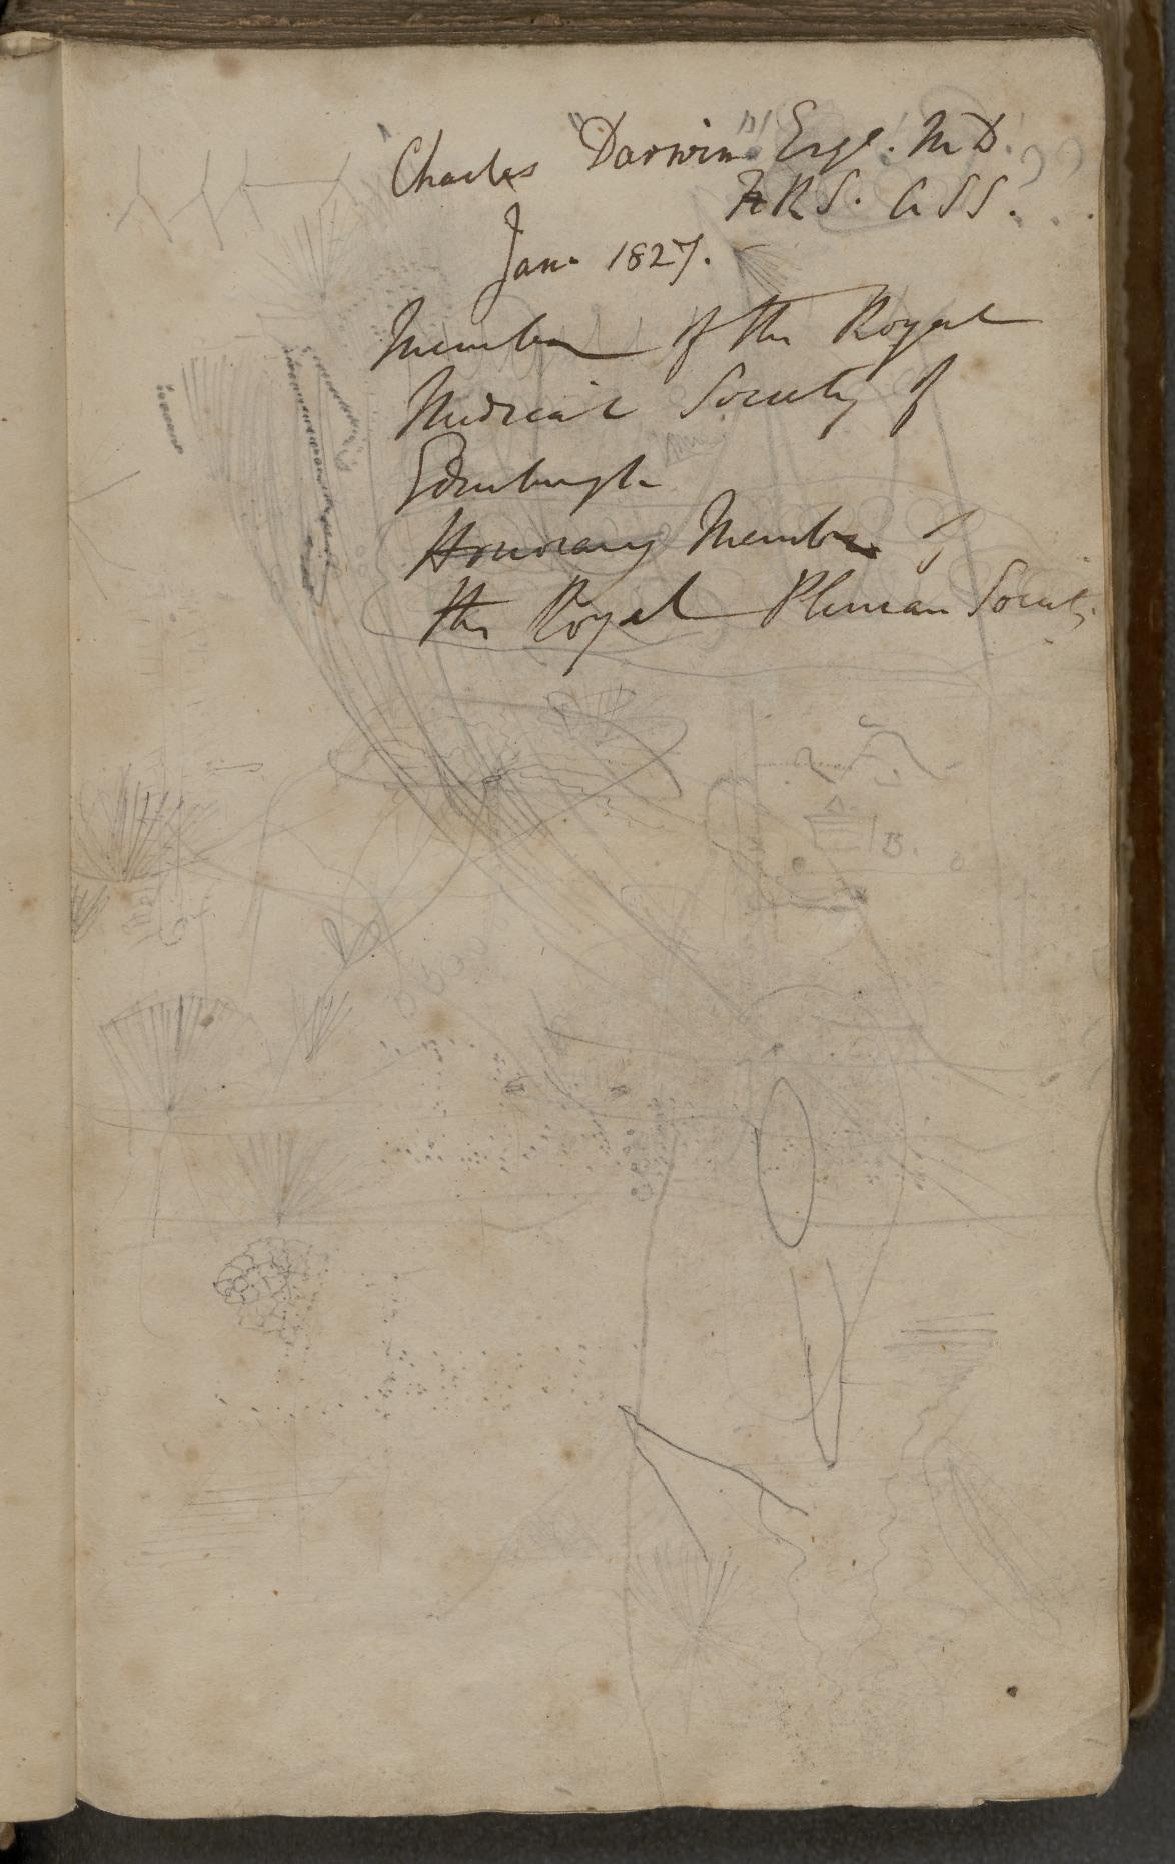 Charles Darwin Esqe. M D.
F.R S. A SS.
Jan. 1827.
Member of the Royal
Medical Society of
Edinburgh
Honorary Member of
the Royal Plinian Society
B.